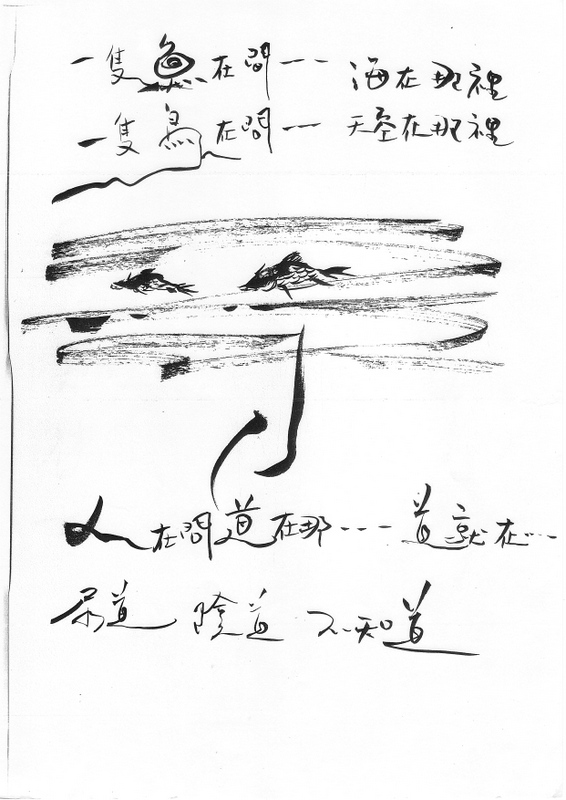 一隻魚在問--- 海在那裡
一隻鳥在問-- 天空在那裡
人在問道在那--- 道就在...--
尿道 陰道 不知道